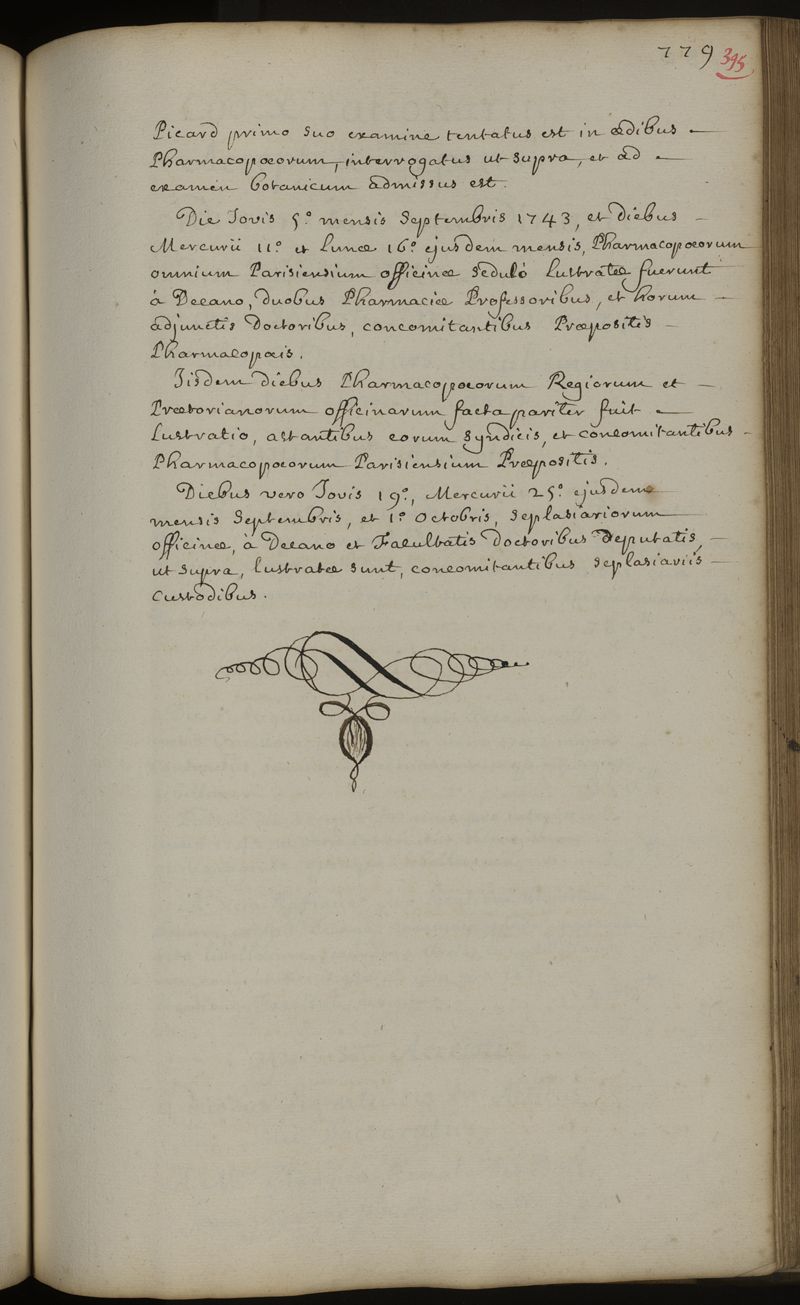 779 395
Picard primo suo examine tentatus est in ædibus —
Pharmacopoeorum, interrogatus ut supra, et ad —
examen botanicum admissus est.
Die Jovis 5.° mensis Septembris 1743, et diebus —
Mercurii 11.° et Lunæ 16.° ejusdem mensis, Pharmacopoeorum
omnium Parisiensium officinæ sedulò Lustratæ fuerunt
à Decano, duobus Pharmaciæ Professoribus, et horum —
adjunctis Doctoribus, concomitantibus Præpositis —
Pharmacopæis.
Iisdem diebus Pharmacopoeorum Regiorum et —
Prætorianorum officinarum facta pariter fuit —
Lustratio, astantibus eorum syndicis, et concomitantibus —
Pharmacopoeorum Parisiensium Præpositis.
Diebus vero Jovis 19.°, Mercurii 25.° ejusdem
mensis Septembris, et 1.° Octobris, Seplasiariorum —
officinæ, à Decano et Facultatis Doctoribus Deputatis, —
ut supra, lustratæ sunt, concomitantibus seplasiariis —
Custodibus.